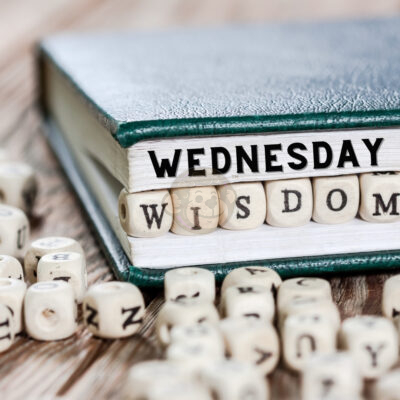 WEDNESDAY
WISDOM